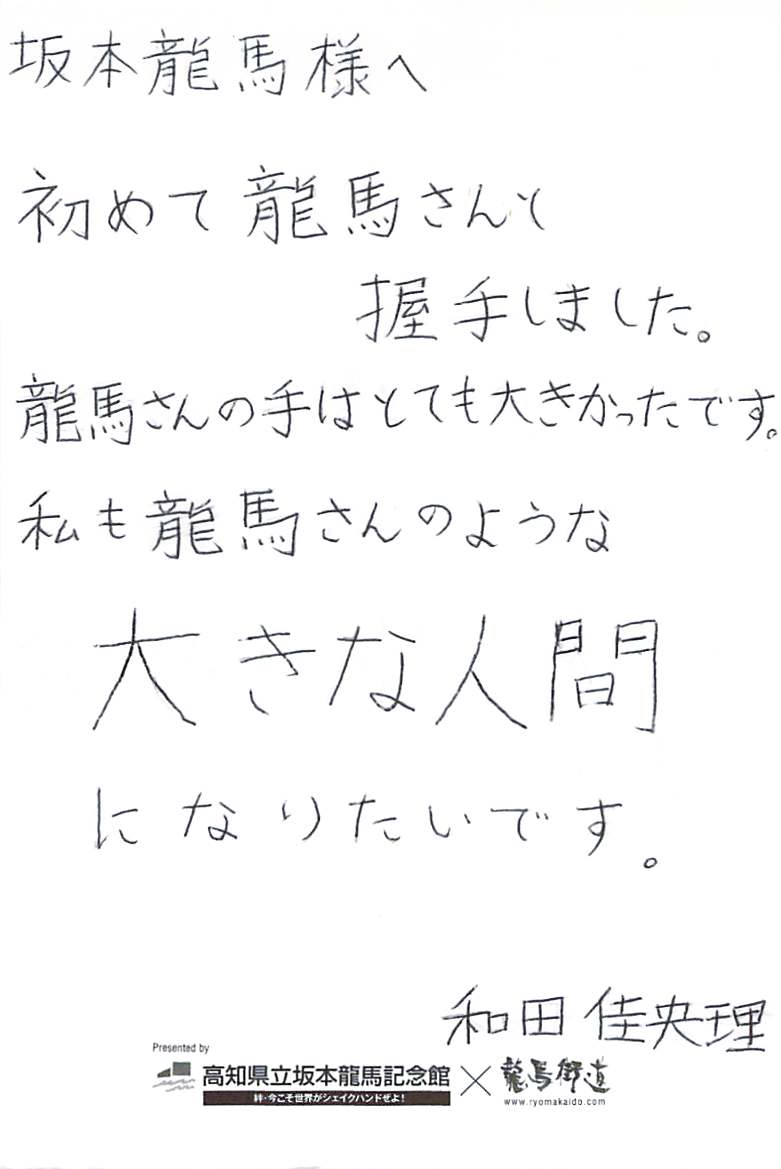 坂本龍馬様へ
初めて龍馬さんと
握手しました。
龍馬さんの手はとても大きかったです。
私も龍馬さんのような
大きな人間
になりたいです。
和田佳央理
Presented by
高知県立坂本龍馬記念館
絆・今こそ世界がシェイクハンドぜよ!
×
龍馬街道
www.ryomakaido.com